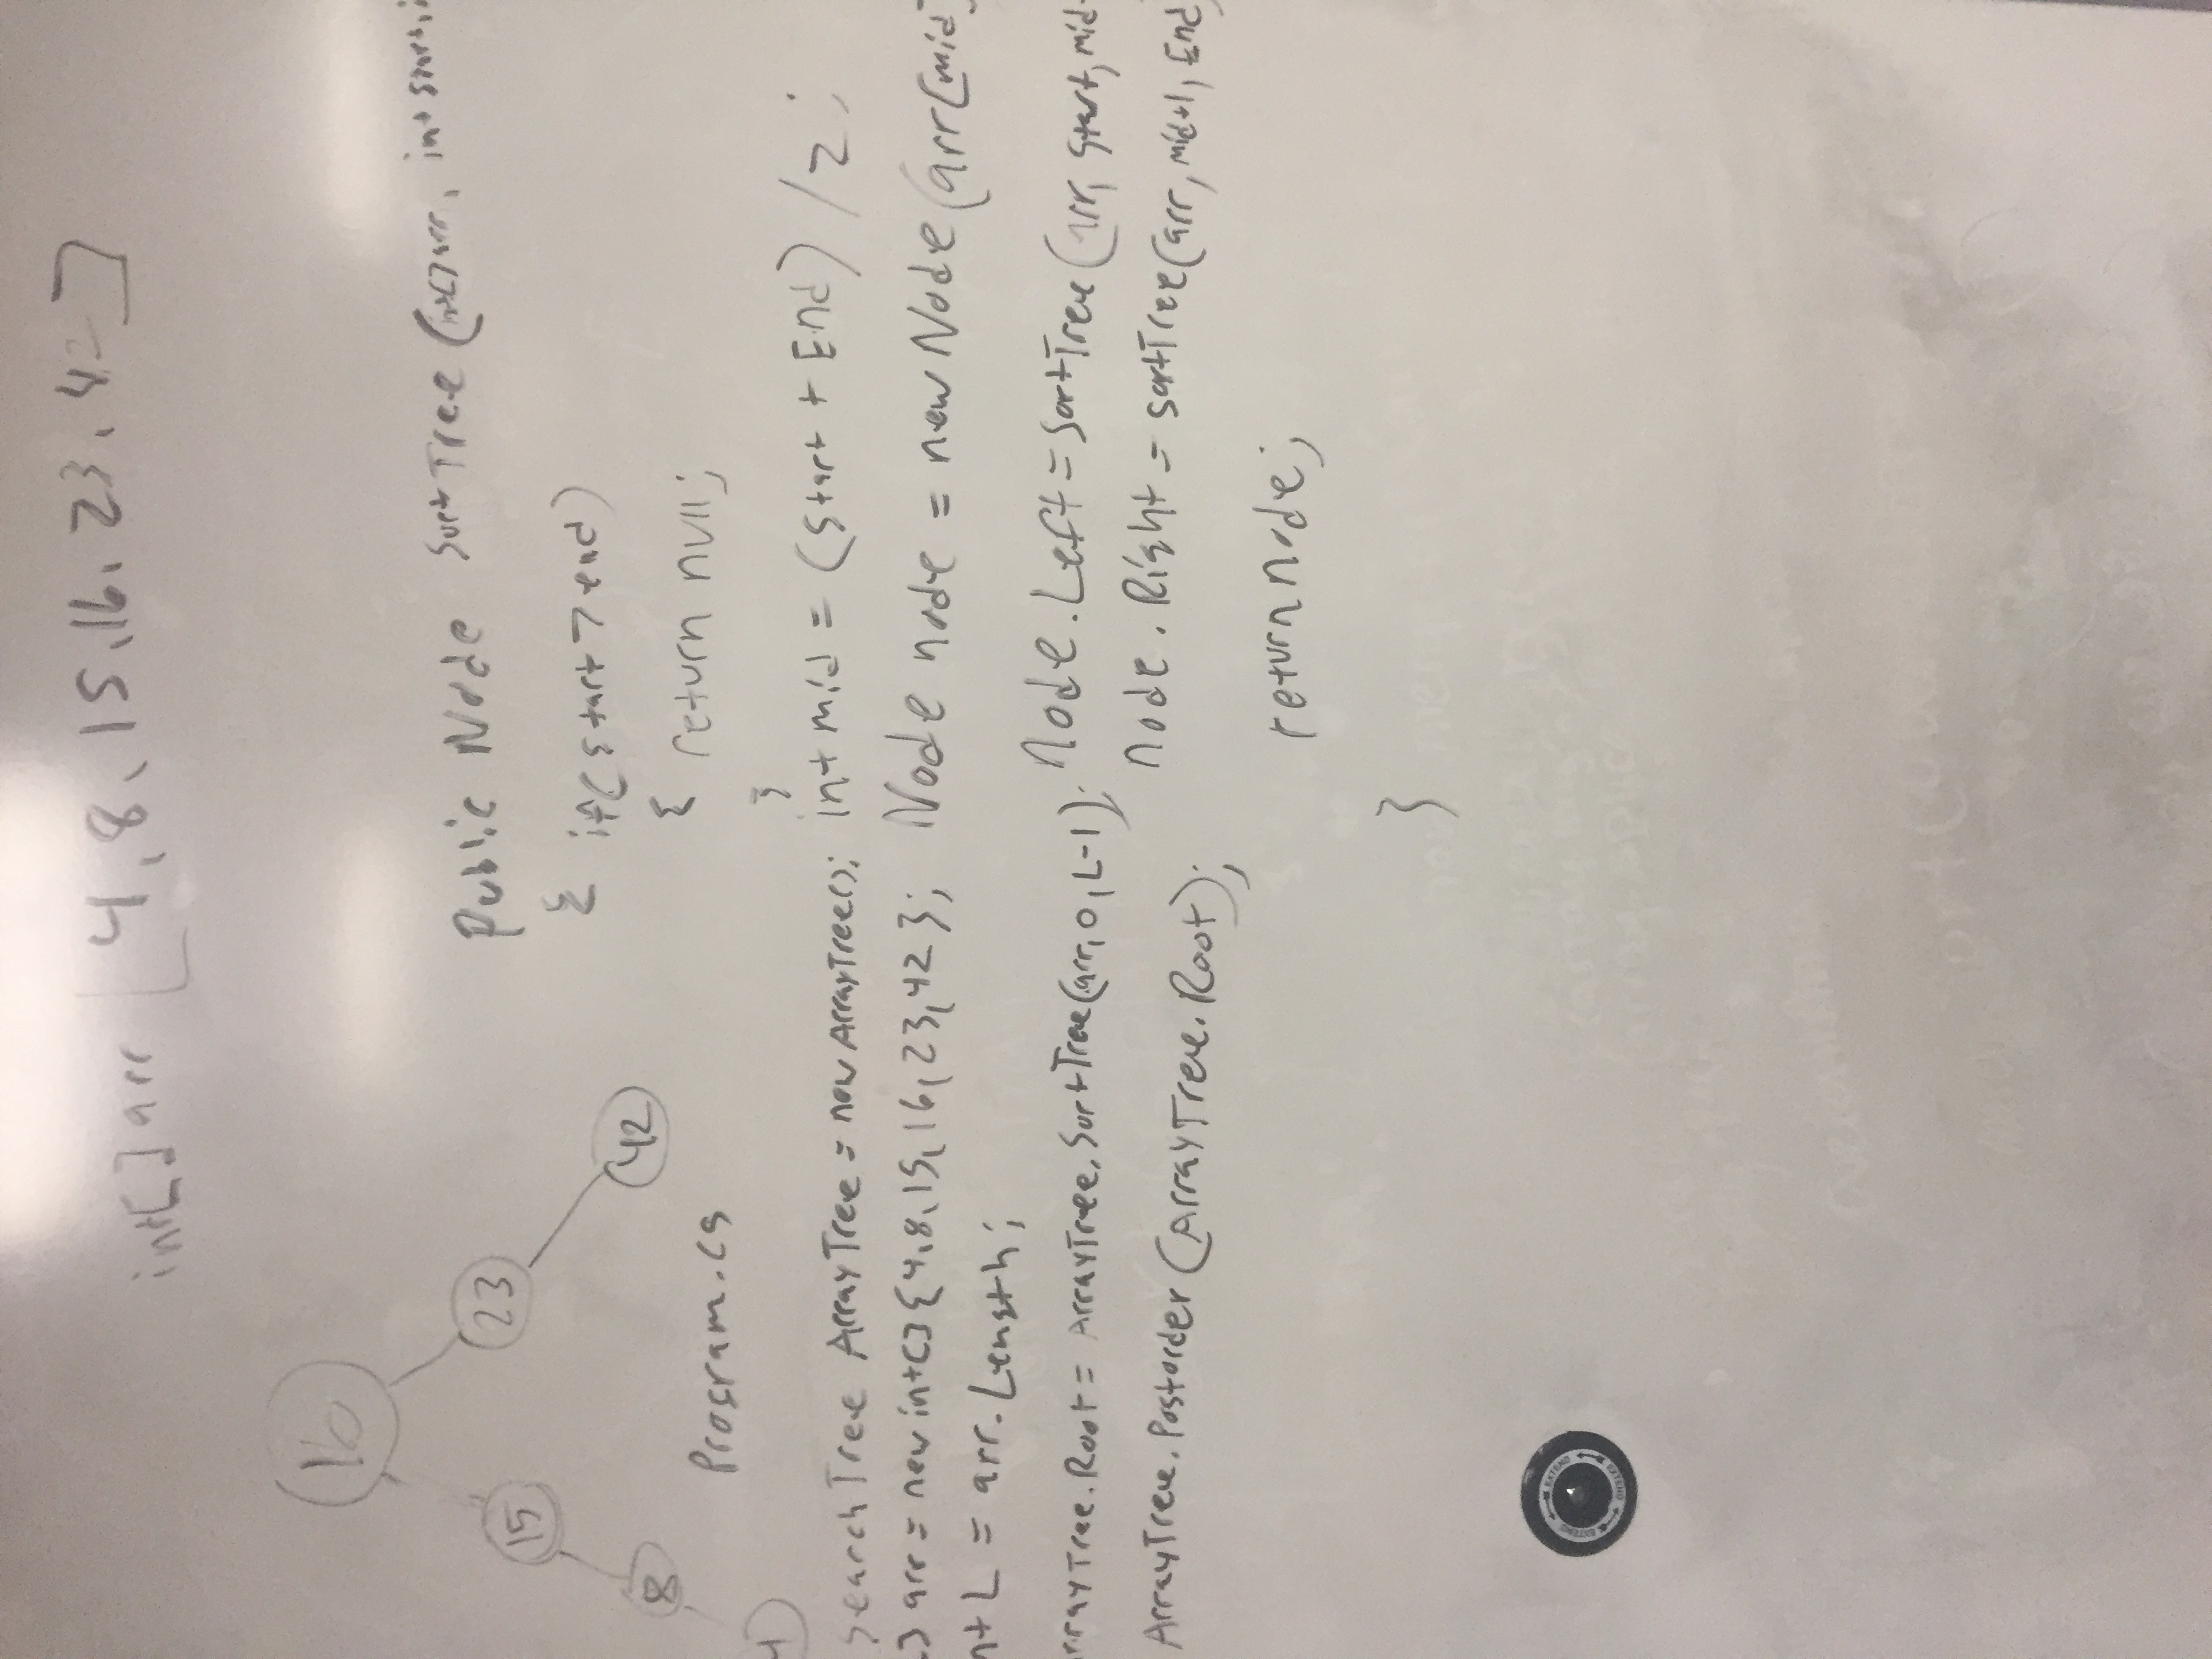 int[] arr [4, 8, 15, 16, 23, 42]
16
15
23
8
42
4
Program.cs
SearchTree ArrayTree = new ArrayTree();
] arr = new int[] {4,8,15,16,23,42};
nt L = arr.Length;
rrayTree.Root = ArrayTree.SortTree(arr, 0, L-1);
ArrayTree.Postorder(ArrayTree.Root);
Public Node SortTree (int[] arr, int start, i
{ if(start > end)
{ return null;
}
int mid = (Start + End) / 2;
Node node = new Node(arr[mid]
node.Left = SortTree(arr, Start, mid-
node.Right = sortTree(arr, mid+1, End)
return node;
}
EXTEND EXTEND EXTEND